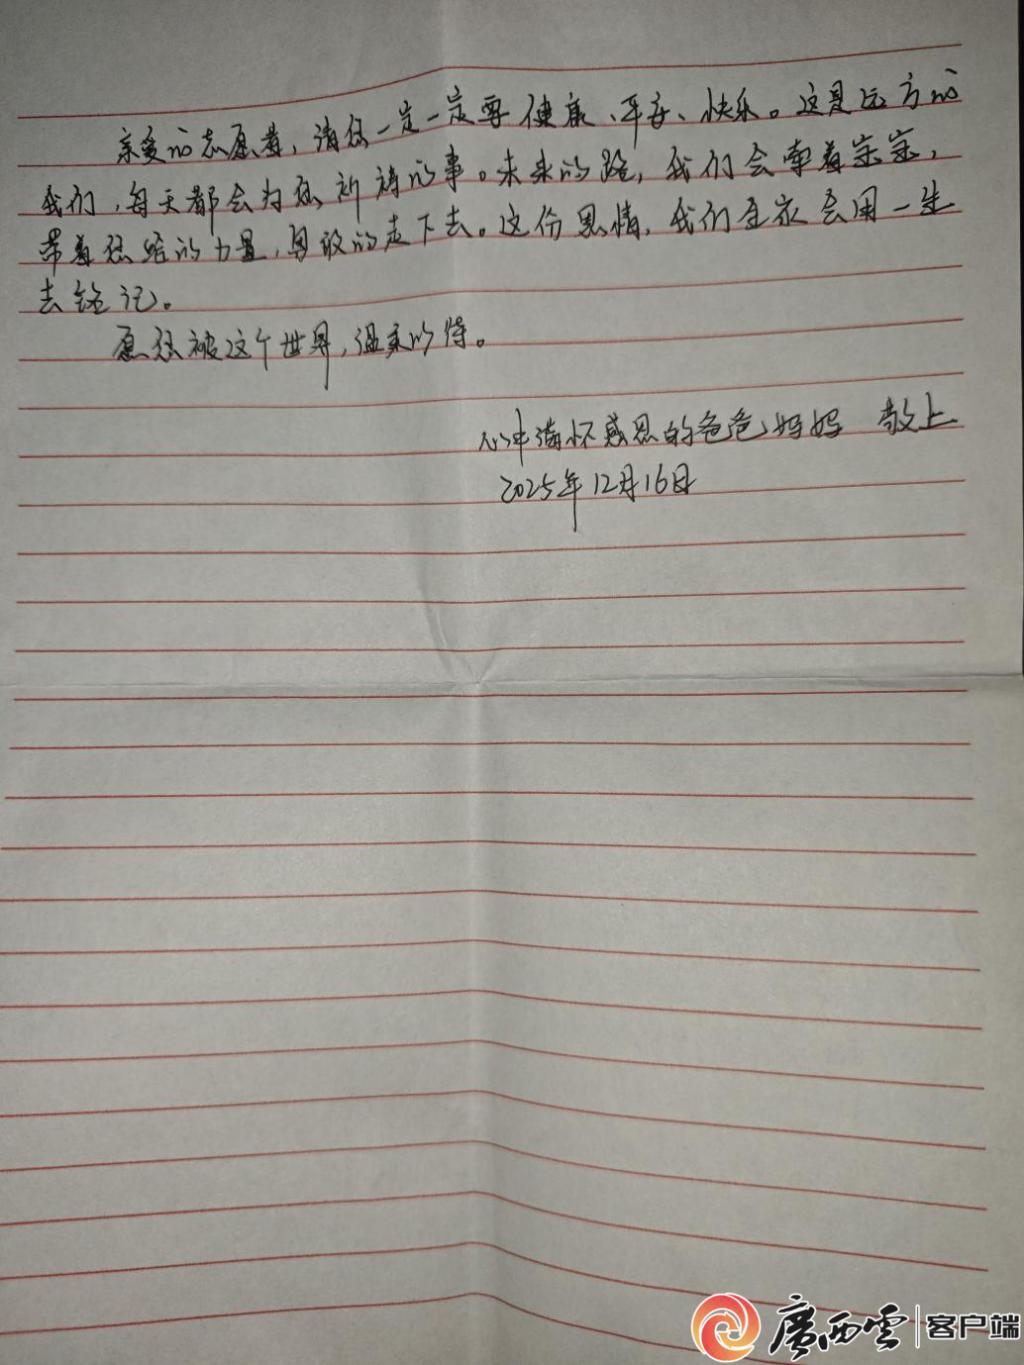 亲爱的志愿者，请您一定一定要健康、平安、快乐。这是远方的
我们，每天都会为您祈祷的事。未来的路，我们会牵着宗宗，
带着您给的力量，勇敢的走下去。这份恩情，我们全家会用一生
去铭记。
愿您被这个世界，温柔以待。
心中满怀感恩的爸爸妈妈 敬上
2025年12月16日
廣西雲 客户端